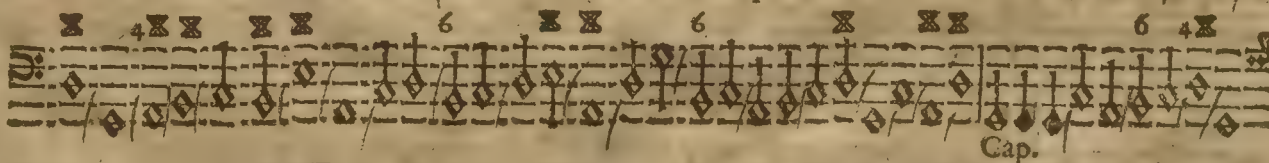 4 6 6 6 4
Cap.